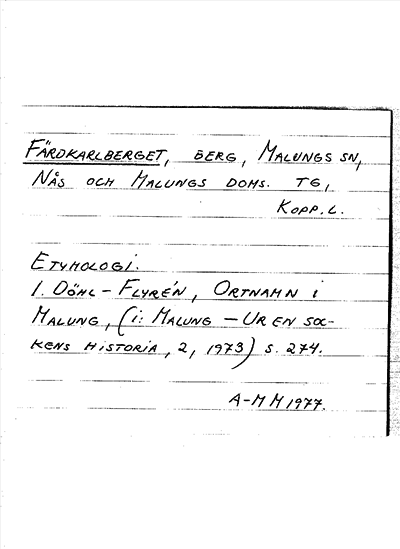 FÄRDKARLBERGET, BERG, MALUNGS SN,
NÅS OCH MALUNGS DOMS. TG,
KOPP. L.
ETYMOLOGI.
I. DÖHL-FLYRÉN, ORTNAMN I
MALUNG, (i: MALUNG – UR EN SOC-
KENS HISTORIA, 2, 1973) S. 274.
A-M M 1977.